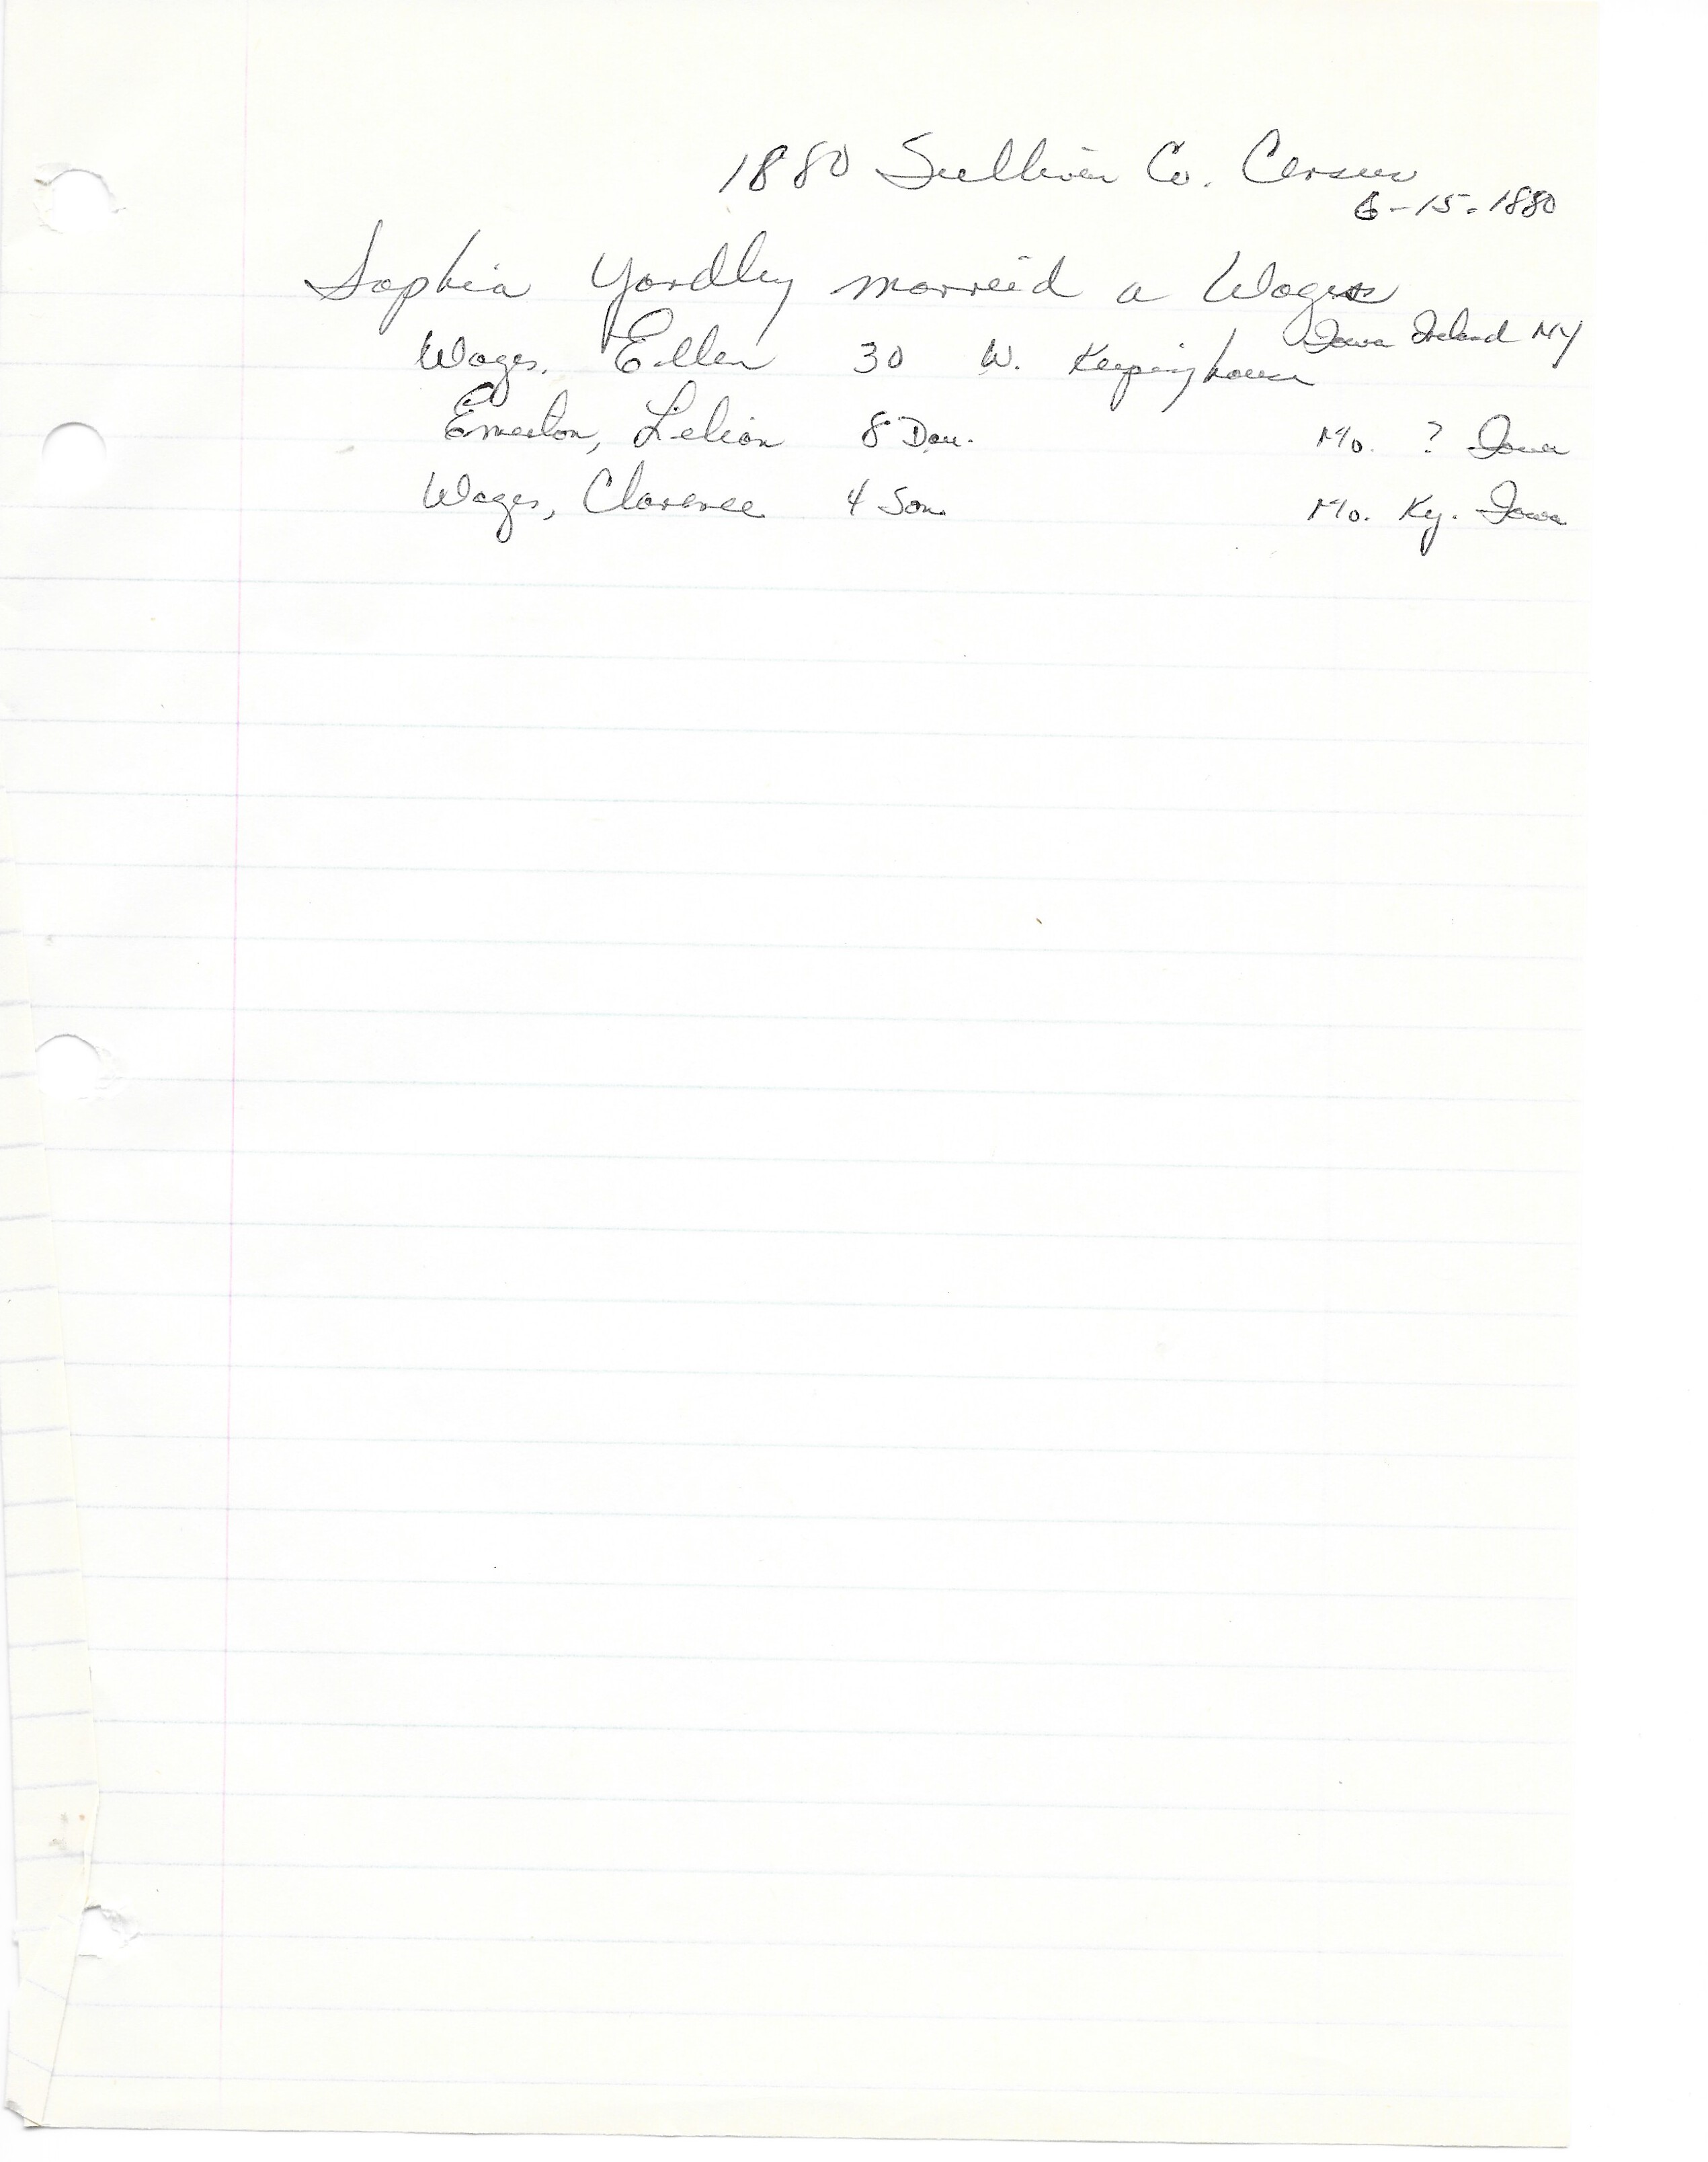 1880 Sullivan Co. Census
6-15-1880
Sophia Yardley married a Wages
Wages, Ellen 30 W. Keeping house Iowa Ireland NY
Emerton, Lilian 8 Dau. Mo. ? Iowa
Wages, Clarence 4 Son Mo. Ky. Iowa